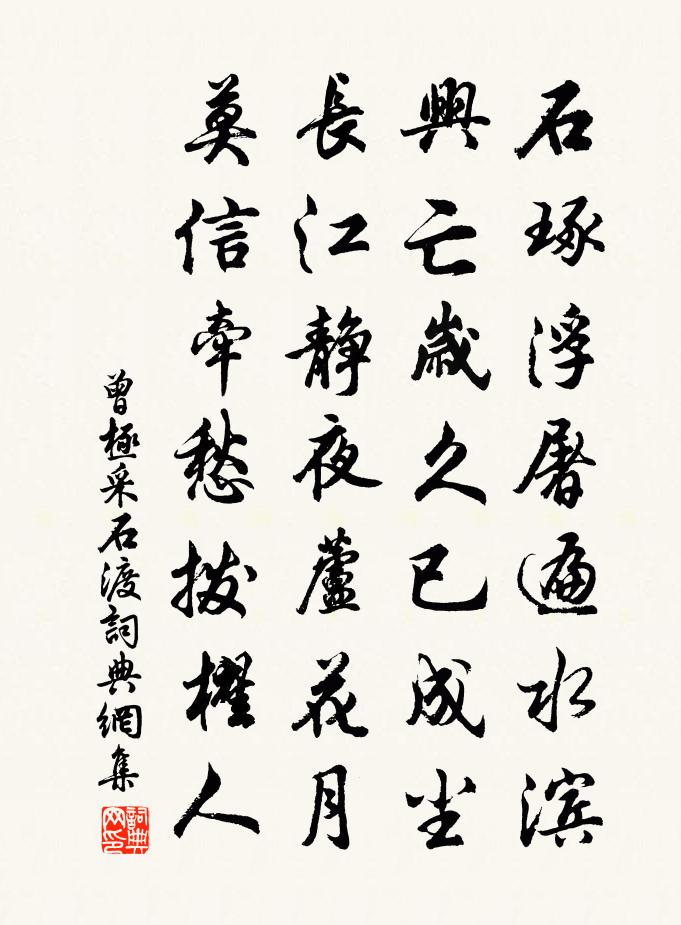 石琢浮屠遍水滨
興亡歲久已成尘
長江静夜蘆花月
莫信牽愁拨櫂人
曾極采石渡詞典網集
詞典网印